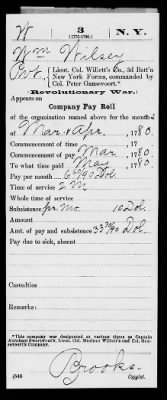 W 3 N.Y.
(1775-1783.)
Wm Wilsey
Pvt, Lieut. Col. Willett's Co., 3d Batt'n
New York Forces, commanded by
Col. Peter Gansevoort.*
(Revolutionary War.)
Appears on
Company Pay Roll
of the organization named above for the months
of Mar & Apr, 1780.
Commencement of time , 17
Commencement of pay Mar, 1780.
To what time paid May, 1780.
Pay per month 6 60/90 Dol.
Time of service 2 M
Whole time of service
Subsistence pr Mo. 10 Dol.
Amt. of pay and subsistence 33 30/90 Dol.
Pay due to sick, absent
Casualties
Remarks:
*This company was designated at various times as Captain
Abraham Swartwout's, Lieut. Col. Marinus Willett's and Col. Gan-
sevoort's Company.
Brooks
(545) Copyist.